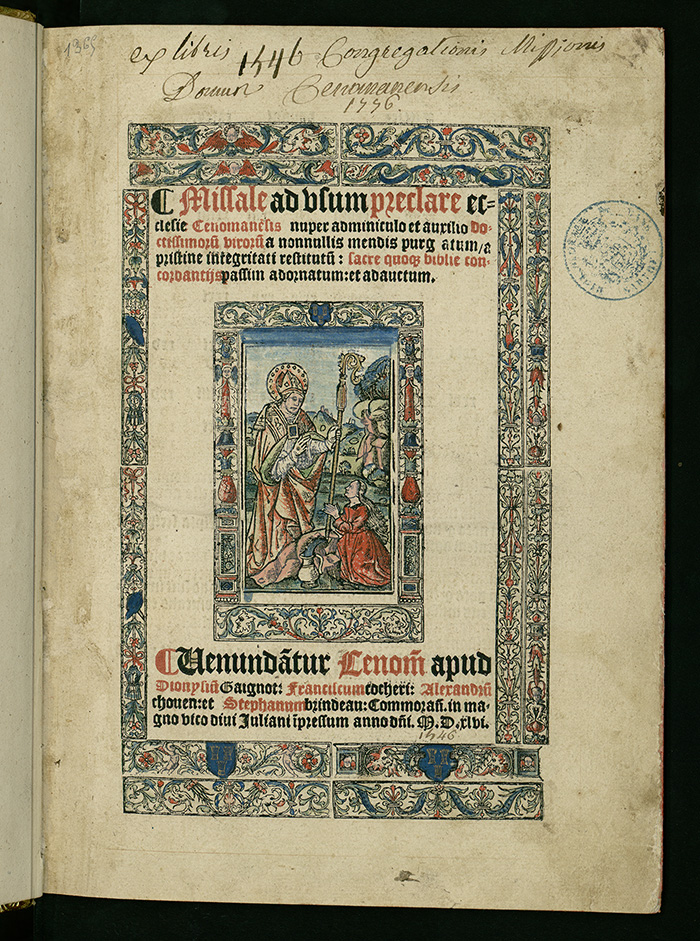 1565
ex libris 1546 Congregationis Missionis
Domus Cenomanensis
1556
Missale ad vsum preclare ec=
clesie Cenomanẽsis nuper adminiculo et auxilio do-
ctissimorũ virorũ a nonnullis mendis purgatum/a
pristine integritati restitutũ: sacre quoqꝫ biblie con-
cordantijs passim adornatum: et adauctum.
Uenundãtur Cenom̃ apud
Dionysiũ Gaignot: Franciscum tocheri: Alexandrũ
chouen: et Stephanum brindeau: Commorañ. in ma-
gno vico diui Juliani ĩpressum anno dñi. M. D. xlvi.
1546